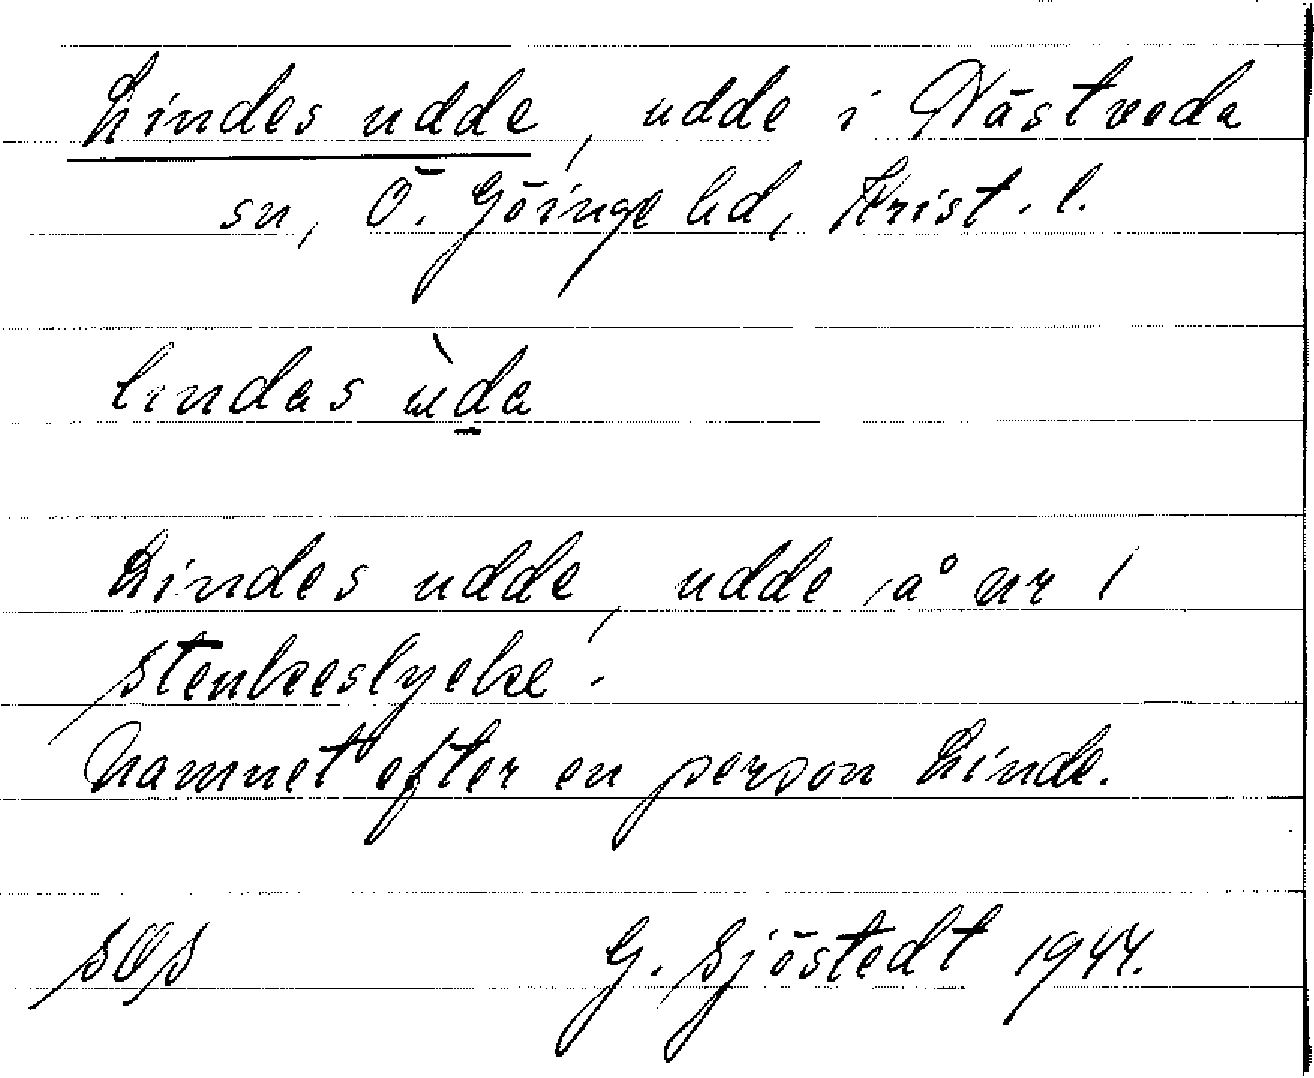 Lindes udde, udde i Västveda
sn, Ö. Göinge hd, Krist. l.
lindas ùda
Lindes udde, udde å nr 1
Stenkeslycke.
Namnet efter en person Linde.
G. Sjöstedt 1944.